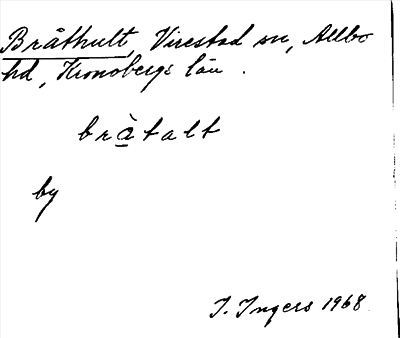 Bråthult, Virestad sn, Allbo
hd, Kronobergs län.
brà̲talt
by
I. Ingers 1968